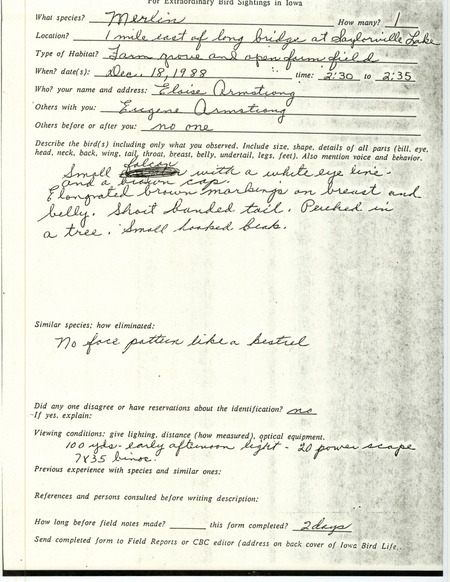 For Extraordinary Bird Sightings in Iowa
What species? Merlin How many? 1
Location? 1 mile east of long bridge at Saylorville Lake
Type of Habitat? Farm grove and open farm field
When? date(s): Dec. 18, 1988 time: 2:30 to 2:35
Who? your name and address: Eloise Armstrong
Others with you: Eugene Armstrong
Others before or after you: no one
Describe the bird(s) including only what you observed. Include size, shape, details of all parts (bill, eye,
head, neck, back, wing, tail, throat, breast, belly, undertail, legs, feet). Also mention voice and behavior.
Small falcon with a white eye line
and a brown cap.
Elongated brown markings on breast and
belly. Short banded tail. Perched in
a tree. Small hooked beak.
Similar species; how eliminated:
No face pattern like a kestrel
Did any one disagree or have reservations about the identification? no
If yes, explain:
Viewing conditions: give lighting, distance (how measured), optical equipment.
100 yds - early afternoon light - 20 power scope
7X35 binoc.
Previous experience with species and similar ones:
References and persons consulted before writing description:
How long before field notes made? this form completed? 2 days
Send completed form to Field Reports or CBC editor (address on back cover of Iowa Bird Life.